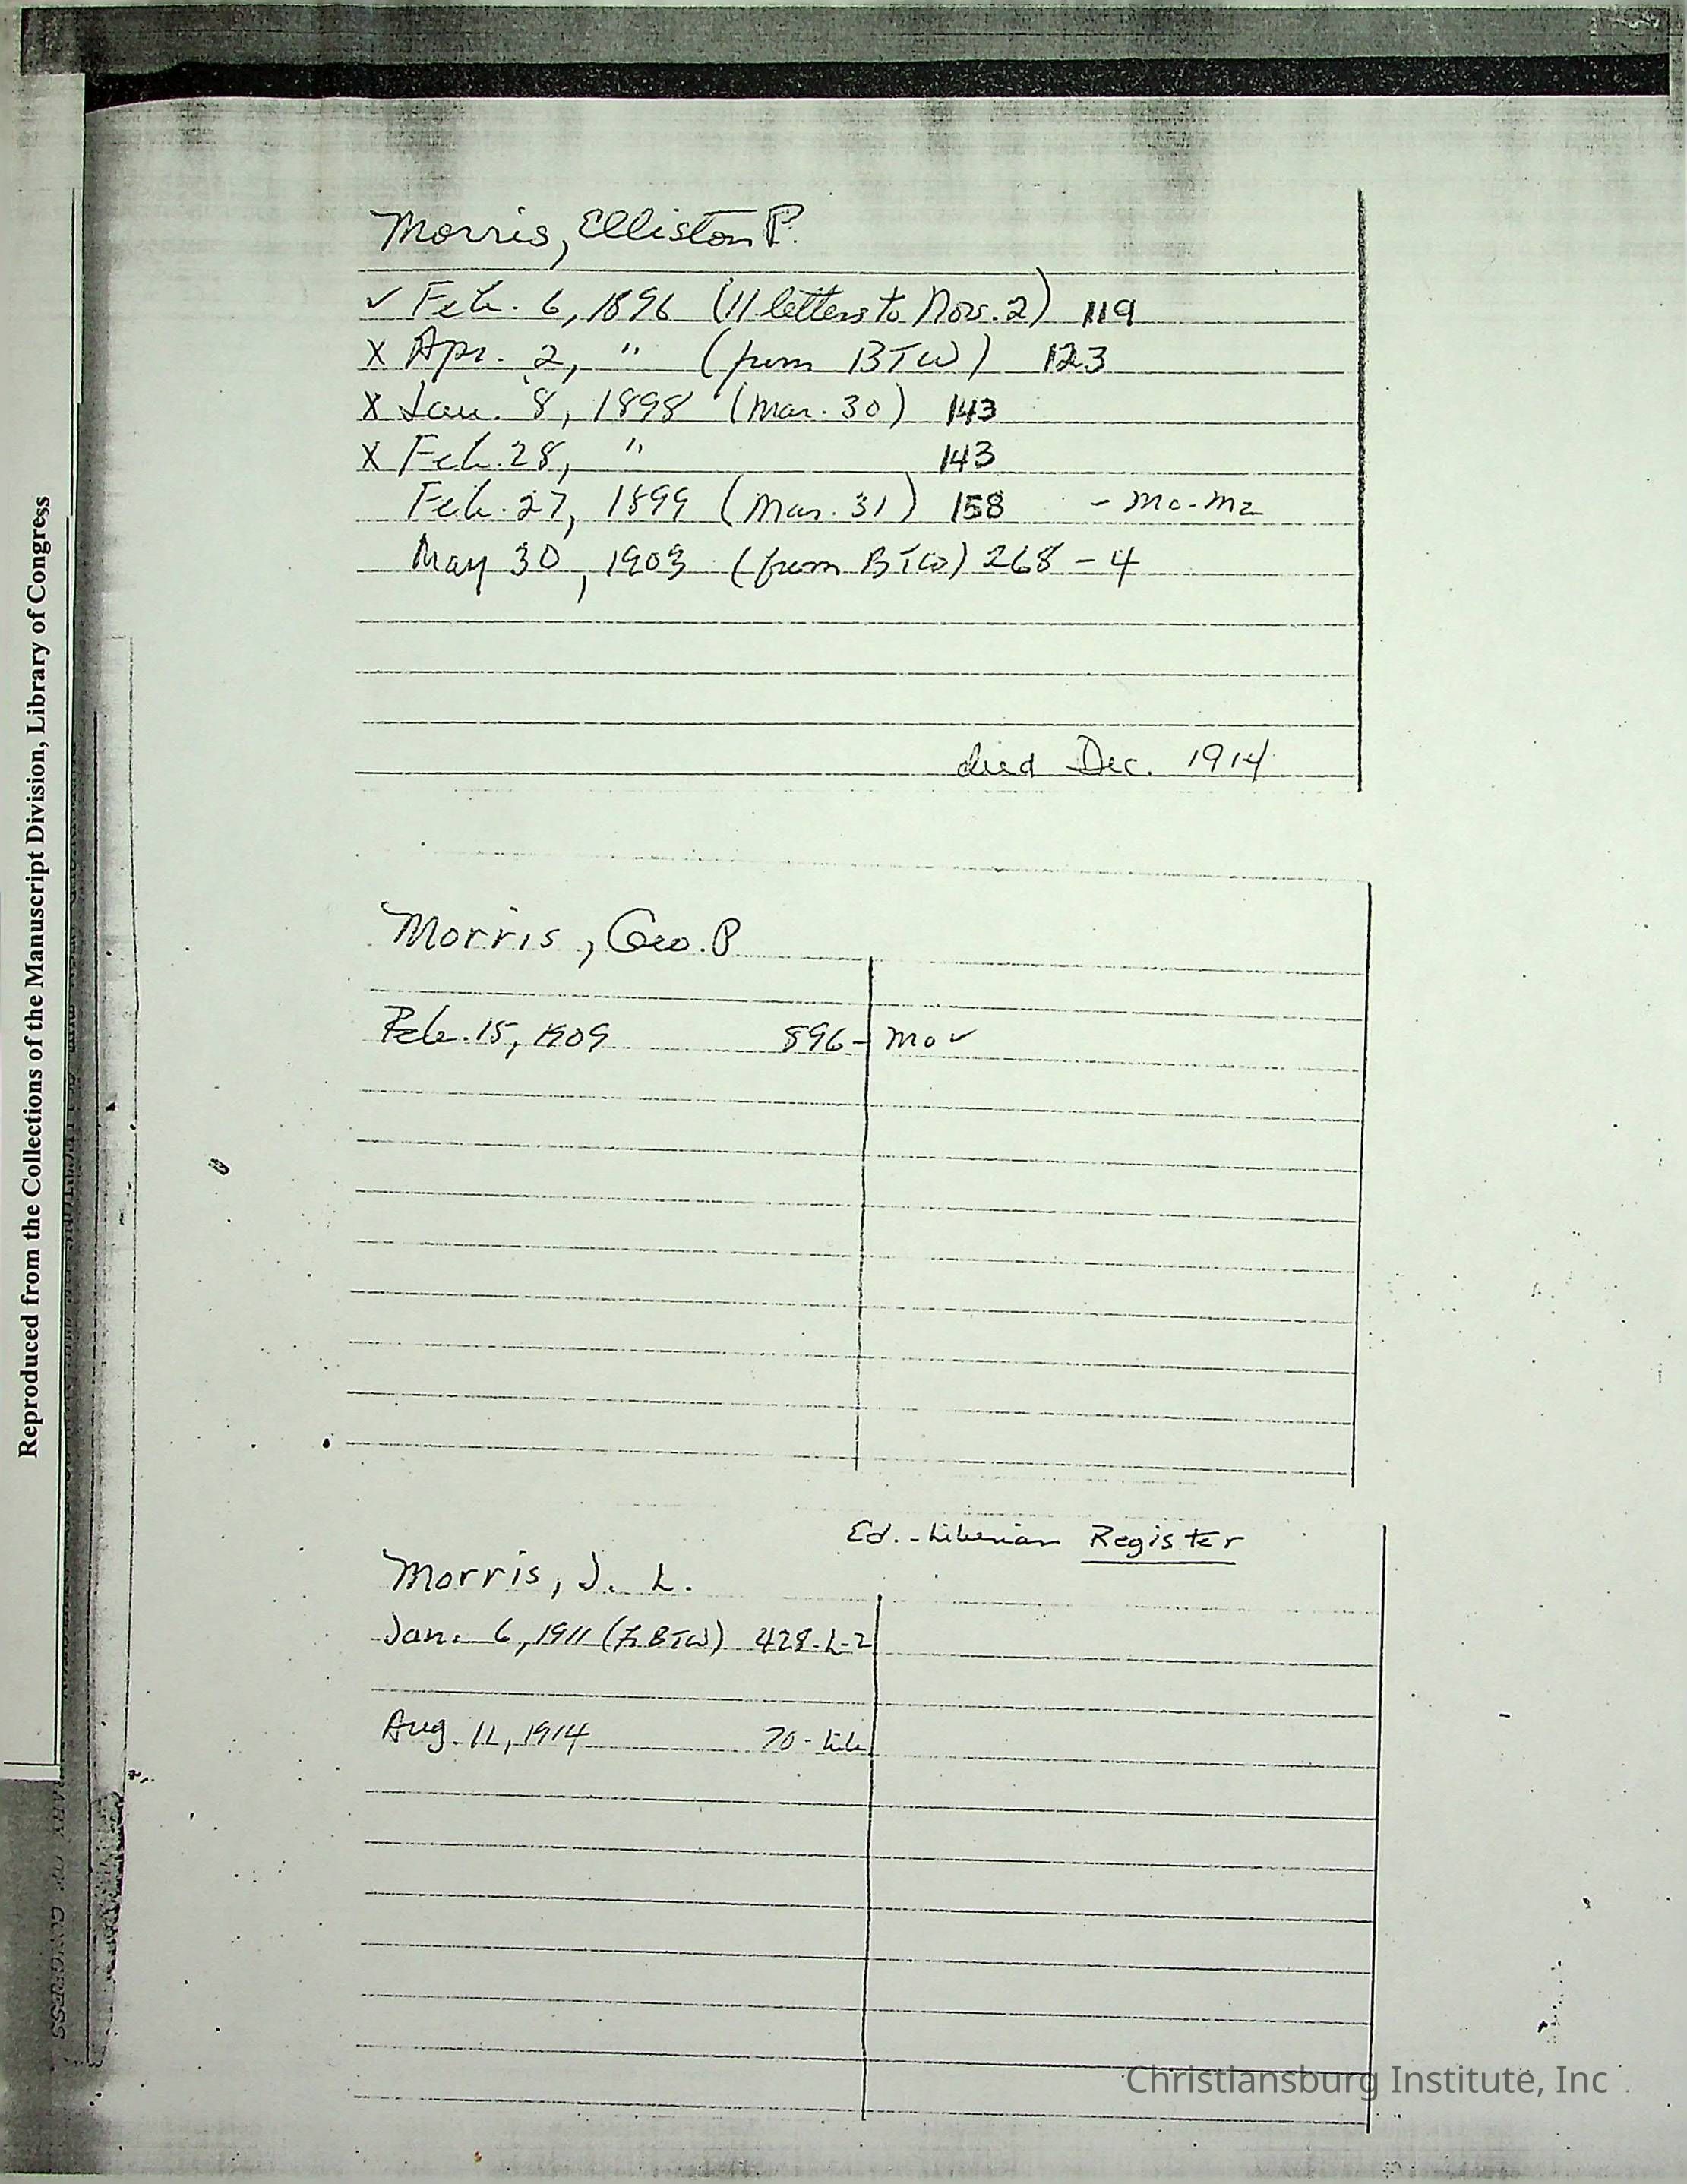 Reproduced from the Collections of the Manuscript Division, Library of Congress
Morris, Elliston P.
✓ Feb. 6, 1896 (11 letters to Nov. 2) 119
X Apr. 2, " (from BTW) 123
X Jan. 8, 1898 (Mar. 30) 143
X Feb. 28, " 143
Feb. 27, 1899 (Mar. 31) 158 - Mc-Mz
May 30, 1903 (from BTW) 268-4
died Dec. 1914
Morris, Geo. P
Feb. 15, 1909 896- Mo ✓
Ed.-Liberian Register
Morris, J. L.
Jan. 6, 1911 (fr BTW) 428-L-2
Aug. 11, 1914 70-Lib
Christiansburg Institute, Inc